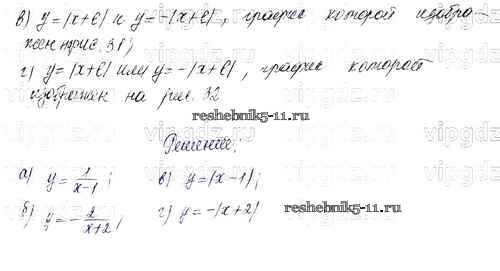 в) y=|x+ℓ| и y=-|x+ℓ|, график которой изобра-
жен на рис. 31;
г) y=|x+ℓ| или y=-|x+ℓ|, график которой
изображен на рис. 32
reshebnik5-11.ru
Решение:
а) y=1/(x-1); в) y=|x-1|;
б) y=-2/(x+2); г) y=-|x+2|
reshebnik5-11.ru
vipgdz